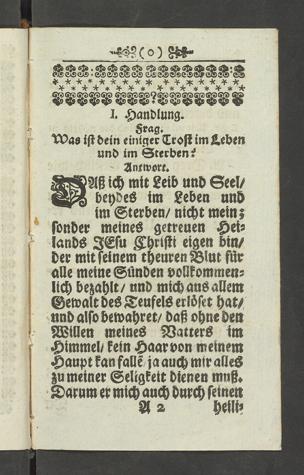 (o)
I. Handlung.
Frag.
Was ist dein einiger Trost im Leben
und im Sterben?
Antwort.
DAß ich mit Leib und Seel/
beydes im Leben und
im Sterben/ nicht mein;
sonder meines getreuen Hei-
lands JEsu Christi eigen bin/
der mit seinem theuren Blut für
alle meine Sünden vollkommen-
lich bezahlt/ und mich aus allem
Gewalt des Teufels erlöset hat/
und also bewahret/ daß ohne den
Willen meines Vatters im
Himmel/ kein Haar von meinem
Haupt kan fallẽ ja auch mir alles
zu meiner Seligkeit dienen muß.
Darum er mich auch durch seinen
A 2 heili-